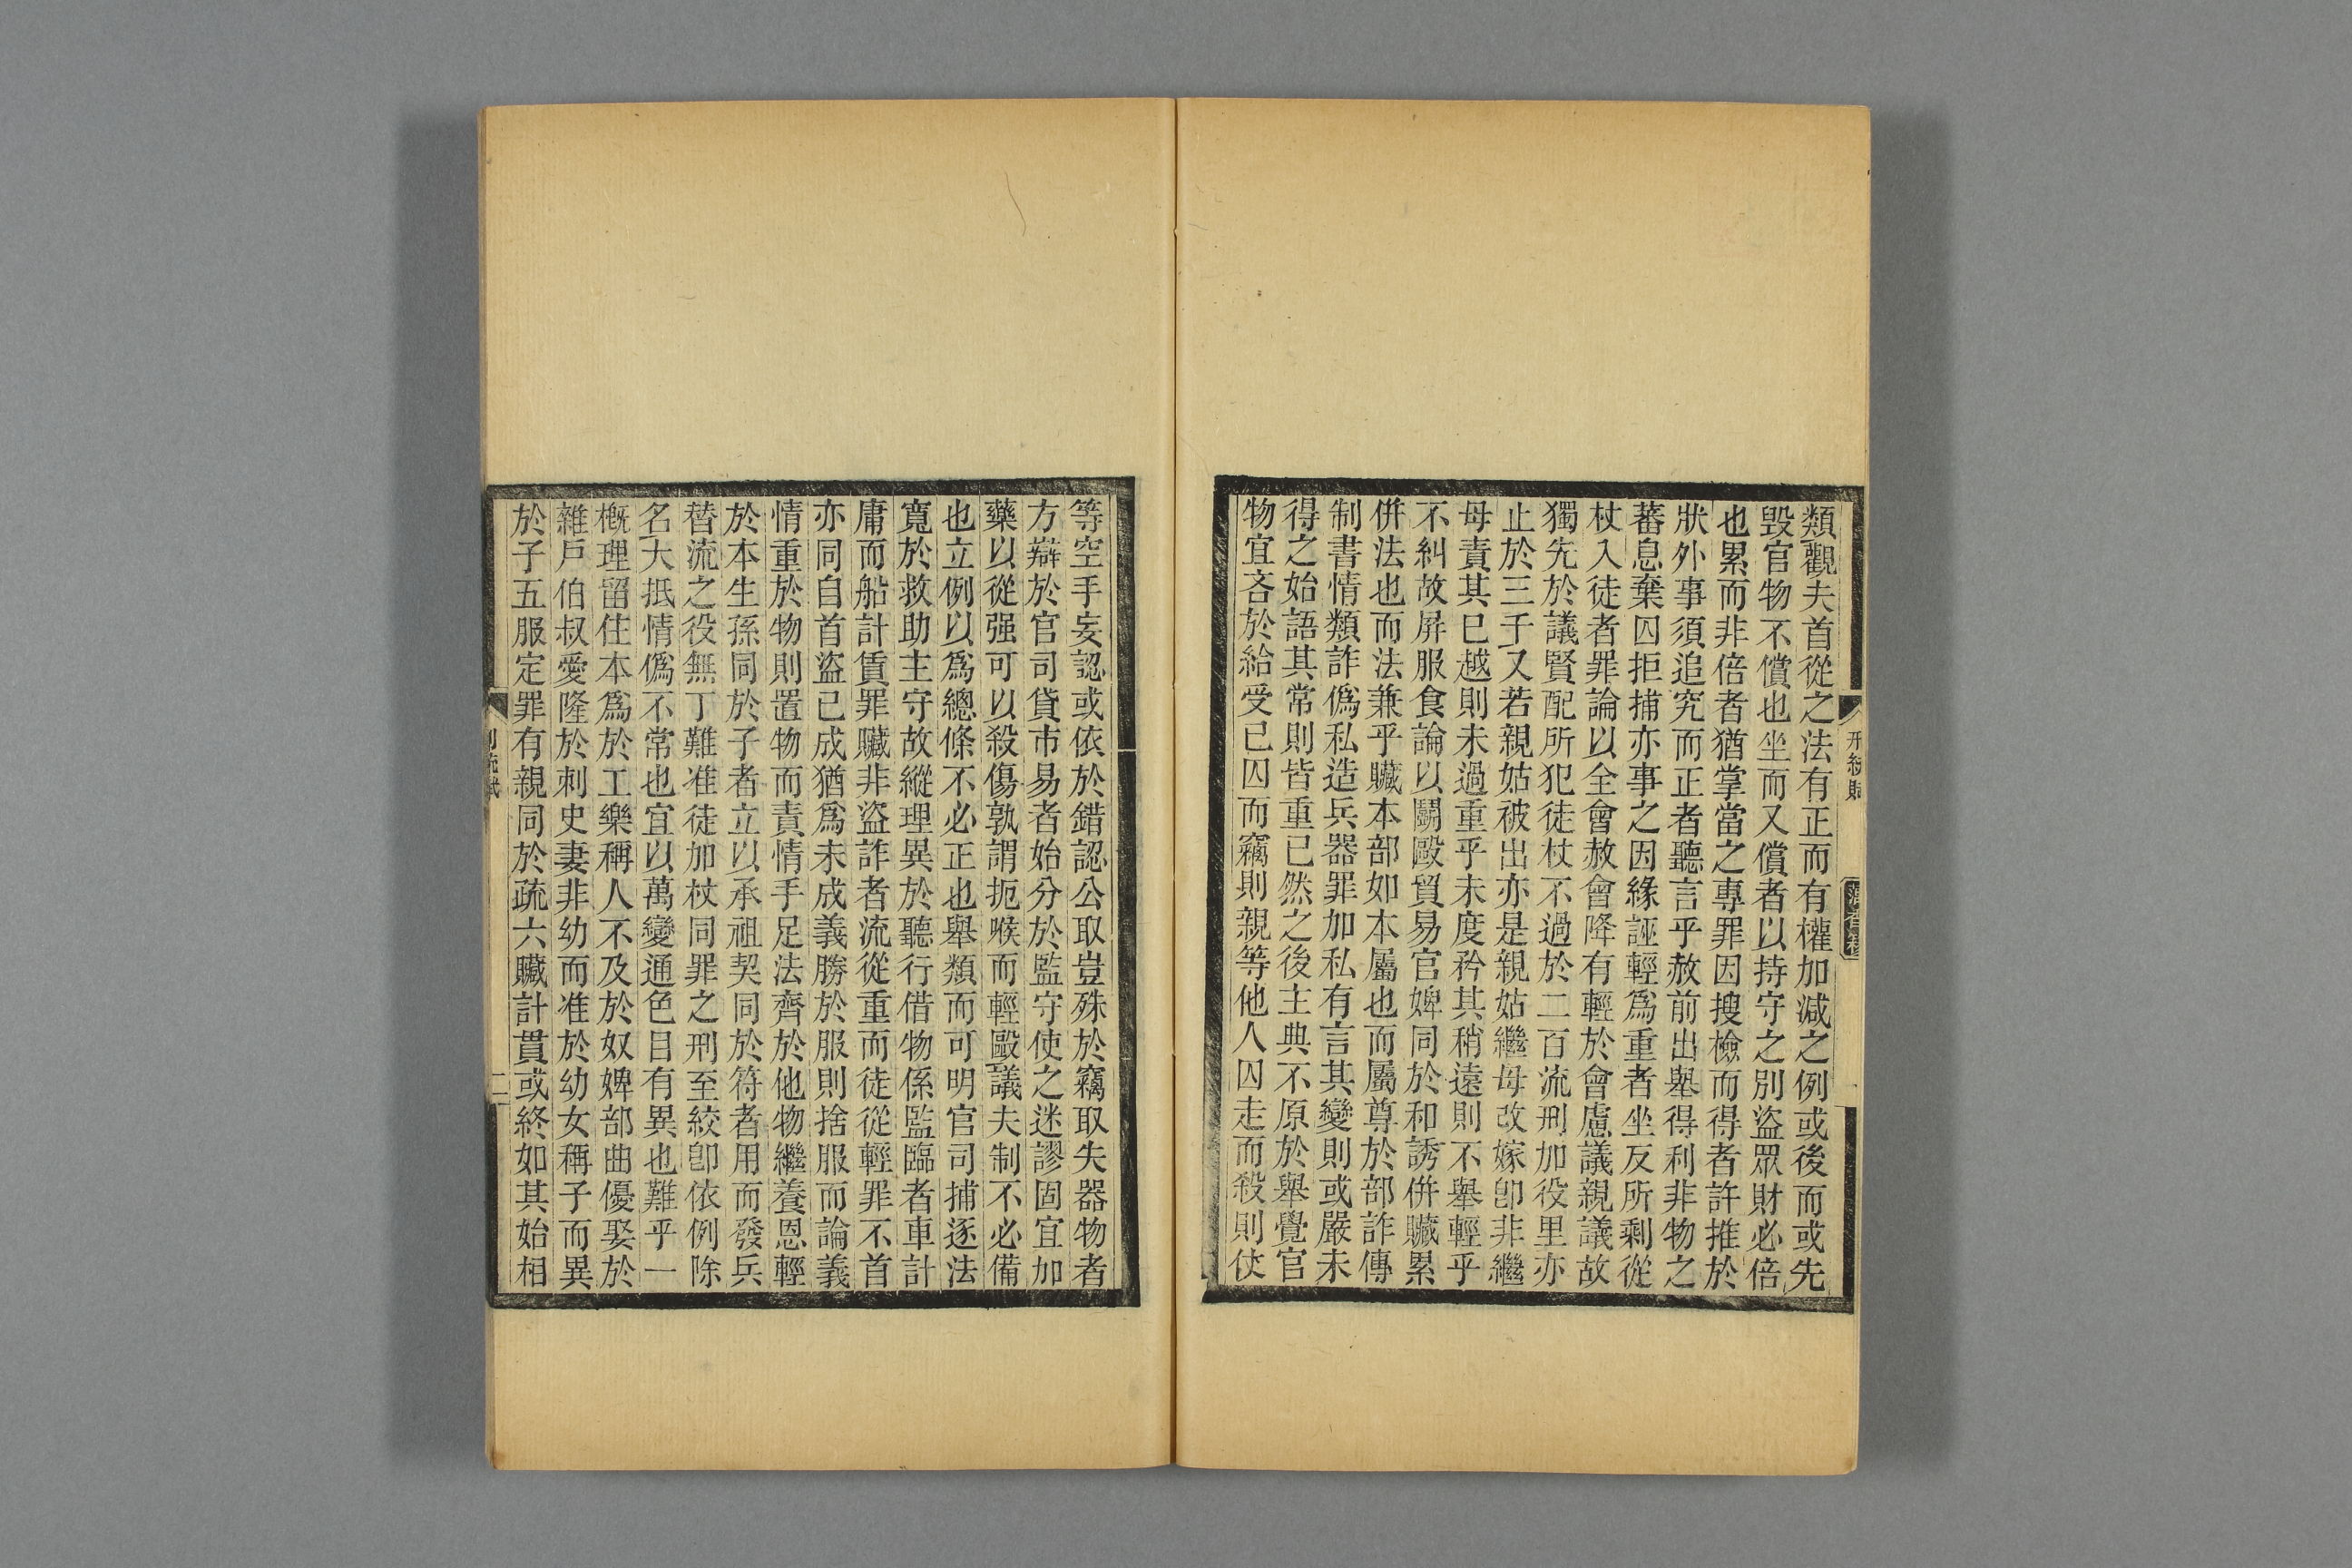 類觀夫首從之法有正而有權加減之例或後而或先
毀官物不償也坐而又償者以持守之別盜眾財必倍
也累而非倍者猶掌當之專罪因搜檢而得者許推於
狀外事須追究而正者聽言乎赦前出舉得利非物之
蕃息棄囚拒捕亦事之因緣誣輕爲重者坐反所剩從
杖入徒者罪論以全會赦會降有輕於會慮議親議故
獨先於議賢配所犯徒杖不過於二百流刑加役里亦
止於三千又若親姑被出亦是親姑繼母改嫁卽非繼
母責其已越則未過重乎未度矜其稍遠則不舉輕乎
不糾故屏服食論以鬭毆貿易官婢同於和誘併贓累
併法也而法兼乎贓本部如本屬也而屬尊於部詐傳
制書情類詐僞私造兵器罪加私有言其變則或嚴未
得之始語其常則皆重已然之後主典不原於舉覺官
物宜吝於給受已囚而竊則親等他人囚走而殺則仗
等空手妄認或依於錯認公取豈殊於竊取失器物者
方辯於官司貸市易者始分於監守使之迷謬固宜加
藥以從强可以殺傷孰謂扼喉而輕毆議夫制不必備
也立例以爲總條不必正也舉類而可明官司捕逐法
寬於救助主守故縱理異於聽行借物係監臨者車計
庸而船計賃罪贓非盜詐者流從重而徒從輕罪不首
亦同自首盜已成猶爲未成義勝於服則捨服而論義
情重於物則置物而責情手足法齊於他物繼養恩輕
於本生孫同於子者立以承祖契同於符者用而發兵
替流之役無丁難准徒加杖同罪之刑至絞卽依例除
名大抵情僞不常也宜以萬變通色目有異也難乎一
槪理留住本爲於工樂稱人不及於奴婢部曲優娶於
雜戶伯叔愛隆於刺史妻非幼而准於幼女稱子而異
於子五服定罪有親同於疏六贓計貫或終如其始相
刑統賦
二